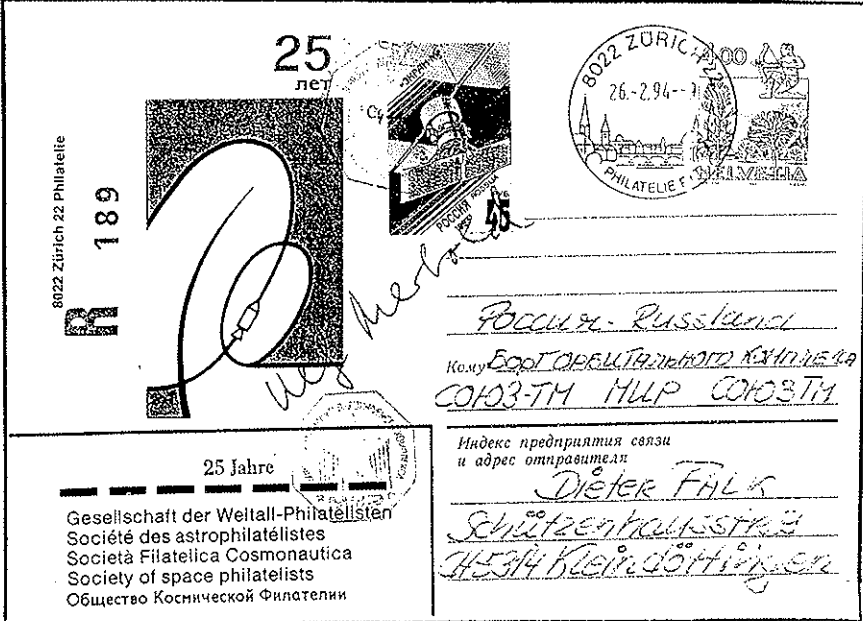 25
лет
8022 Zürich 22 Philatelie
R 189
РОССИЯ ROSSIJA
45
8022 ZÜRICH 22
26.-2.94--
PHILATELIE
HELVETIA
Россия - Russland
Кому Борт орбитального комплекса
СОЮЗ-ТМ МИР СОЮЗ ТМ
Индекс предприятия связи
и адрес отправителя
Dieter FALK
Schützenhausstr
5314 Kleindöttingen
25 Jahre
Gesellschaft der Weltall-Philatelisten
Société des astrophilatélistes
Società Filatelica Cosmonautica
Society of space philatelists
Общество Космической Филателии